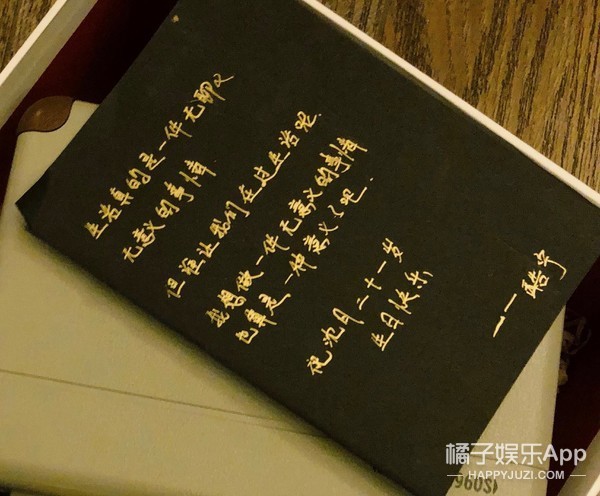 生活真的是一件无聊又
无意义的事情
但谁让我们在过生活呢
我想做一件无意义的事情
也算是一种意义了吧.
祝沈月二十一岁
生日快乐
——酷宇
橘子娱乐App
HAPPYJUZI.COM